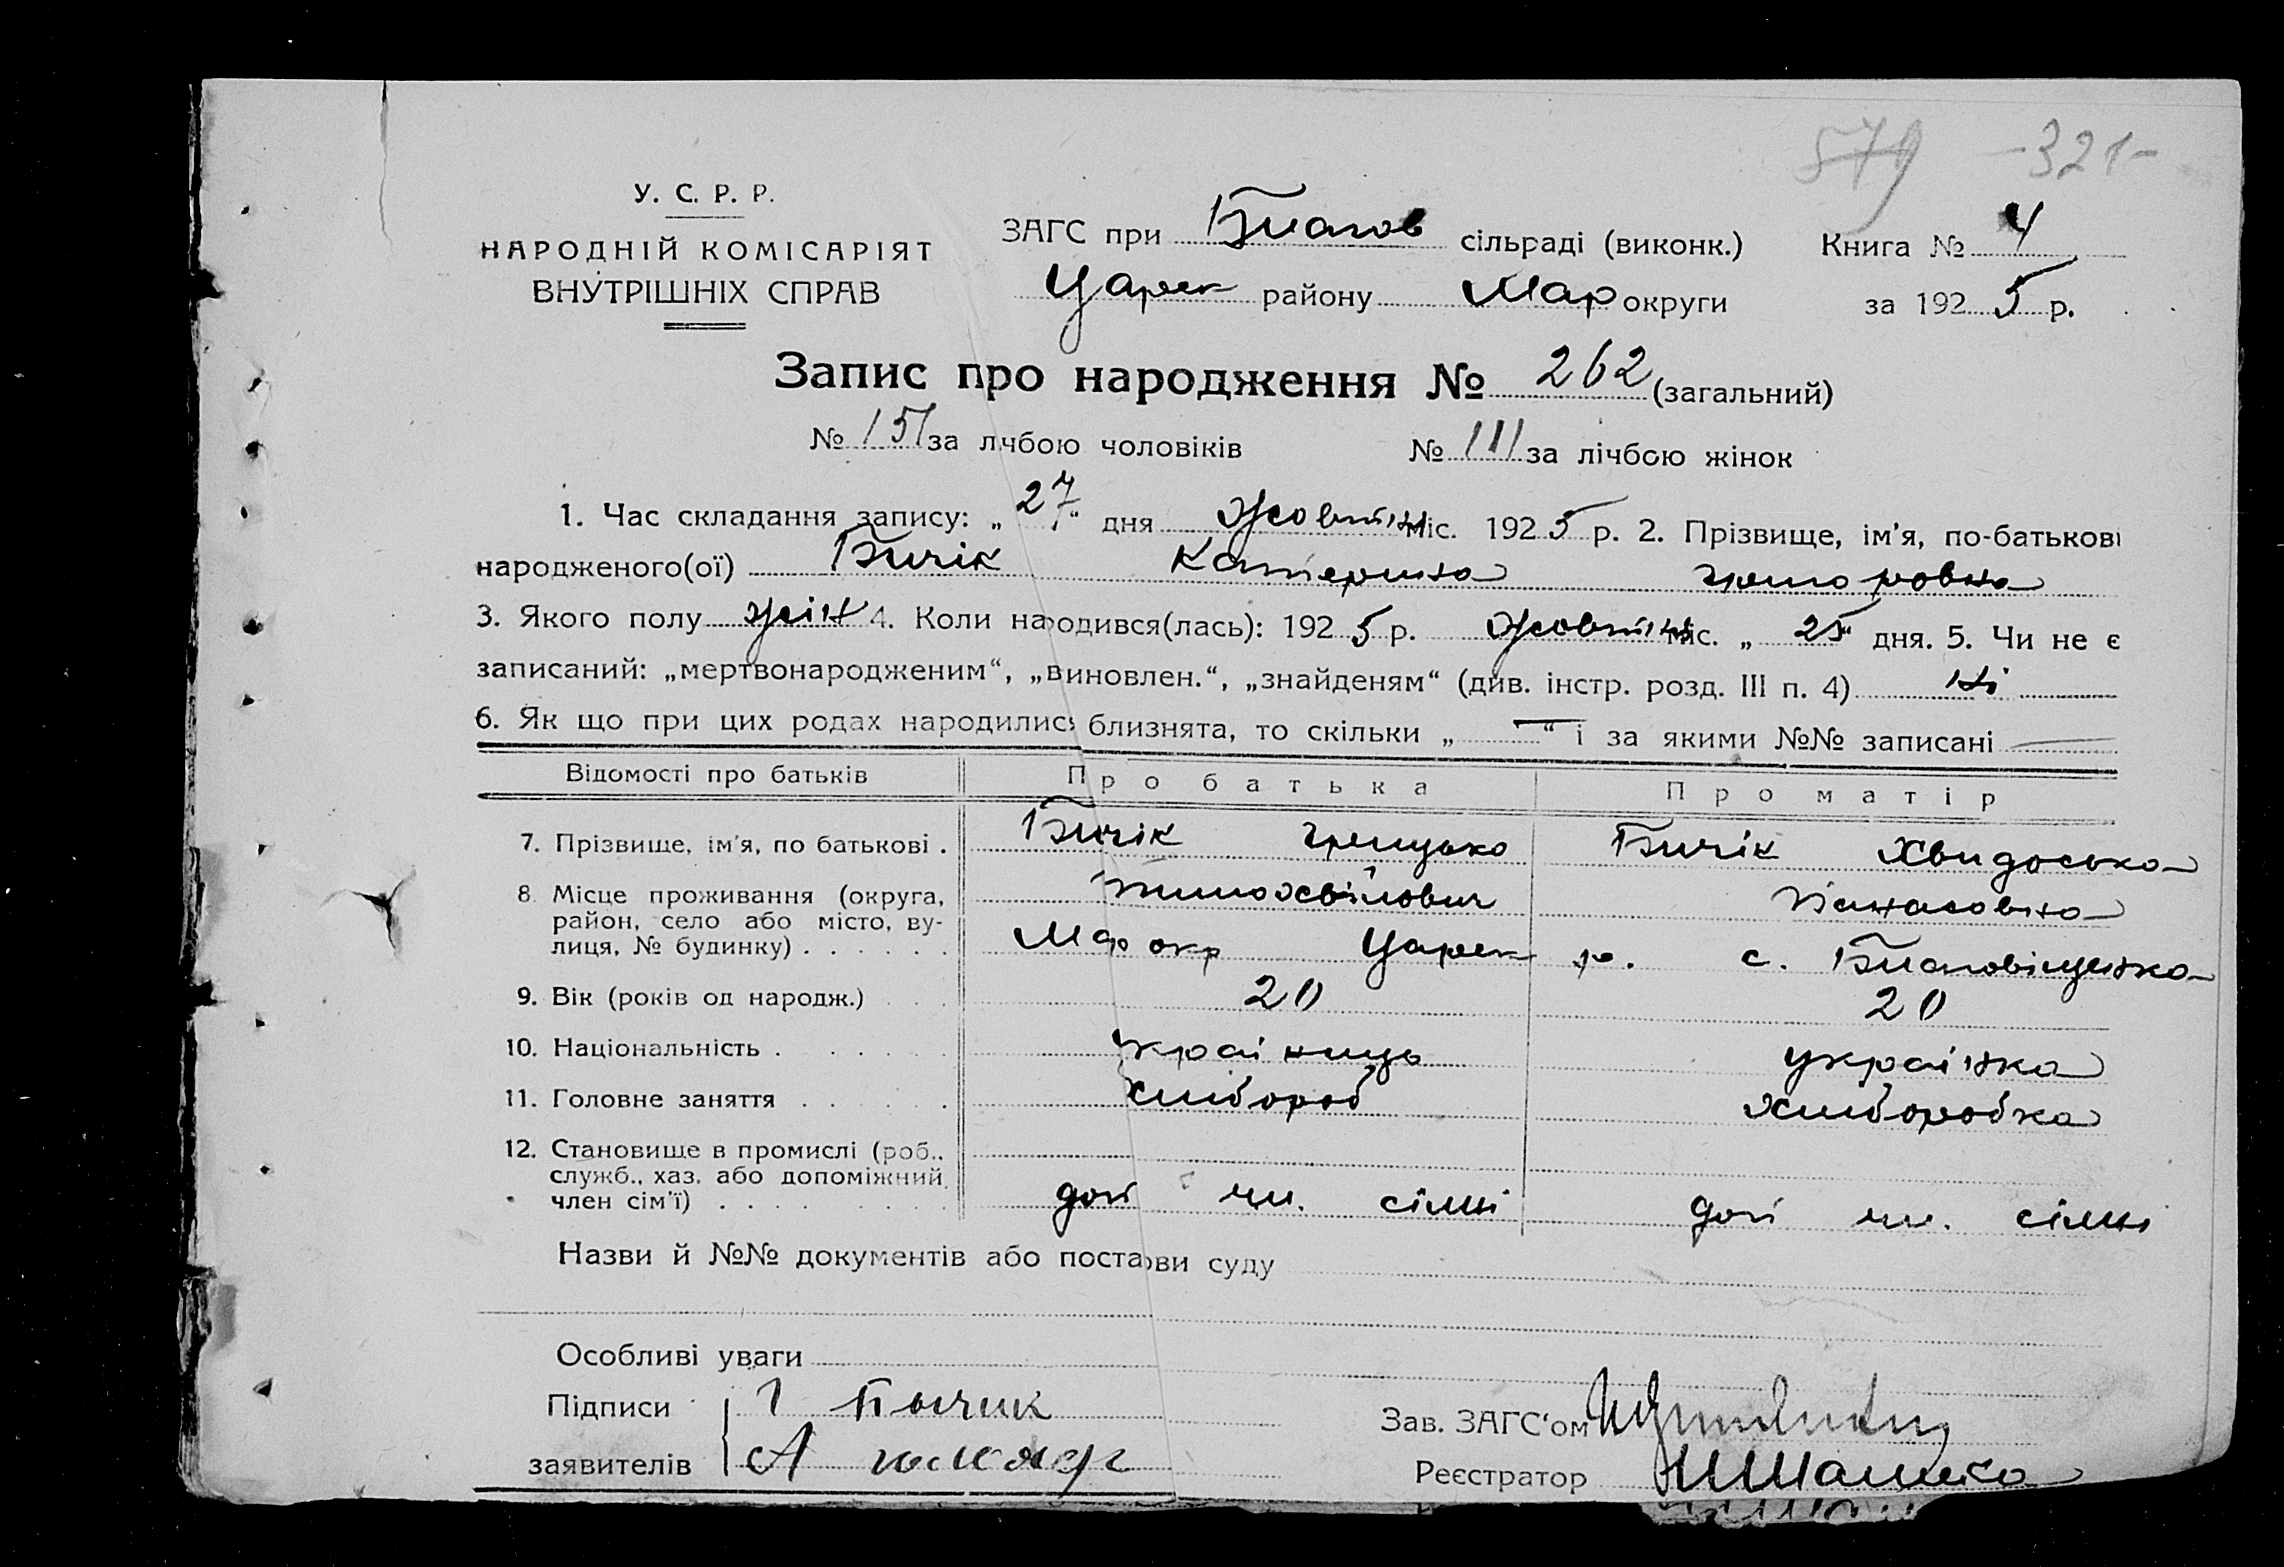 579 -321-
У. С. Р. Р.
НАРОДНІЙ КОМІСАРІЯТ
ВНУТРІШНІХ СПРАВ
ЗАГС при Благов сільраді (виконк.) Книга № 4
Царек району Мар округи за 1925 р.
Запис про народження № 262 (загальний)
№ 151 за лічбою чоловіків № 111 за лічбою жінок
1. Час складання запису: „27“ дня жовтня міс. 1925 р. 2. Прізвище, ім’я, по-батькові
народженого(ої) Бичік Катерина Григоровна
3. Якого полу жін 4. Коли народився(лась): 1925 р. жовтня міс. „25“ дня. 5. Чи не є
записаний: „мертвонародженим“, „виновлен.“, „знайденям“ (див. інстр. розд. III п. 4) ні
6. Як що при цих родах народились близнята, то скільки „—“ і за якими №№ записані —
Відомості про батьків Про батька Про матір
7. Прізвище, ім’я, по батькові . Бичік Грицько Бичік Хвидоська
Тимохвійович Панасовна
8. Місце проживання (округа,
район, село або місто, ву-
лиця, № будинку) . . . . . . Мар окр Царек р. с. Благовіщенка
9. Вік (років од народж.) . . . 20 20
10. Національність . . . . . . українець українка
11. Головне заняття . . . . . хлибороб хлиборобка
12. Становище в промислі (роб.,
служб., хаз. або допоміжний
член сім’ї) . . . . . . . . доп чл. сімні доп чл. сімні
Назви й №№ документів або постанови суду
Особливі уваги
Підписи Г Бычик
Зав. ЗАГС‘ом
заявителів А
Реєстратор